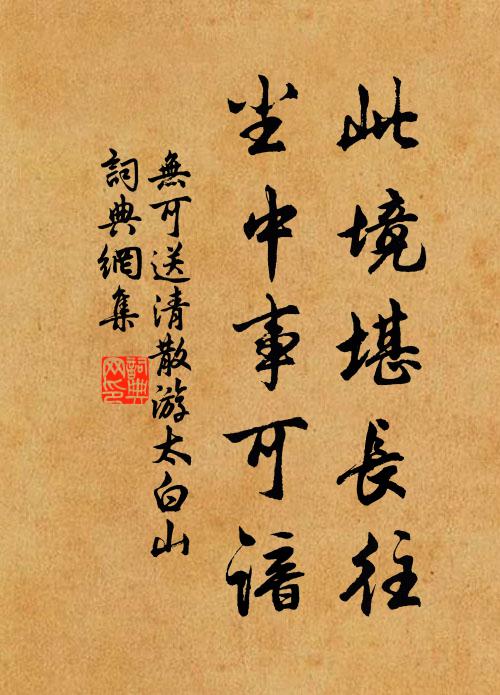 此境堪長往
尘中事可諳
無可送清散游太白山
詞典網集
詞典
网印